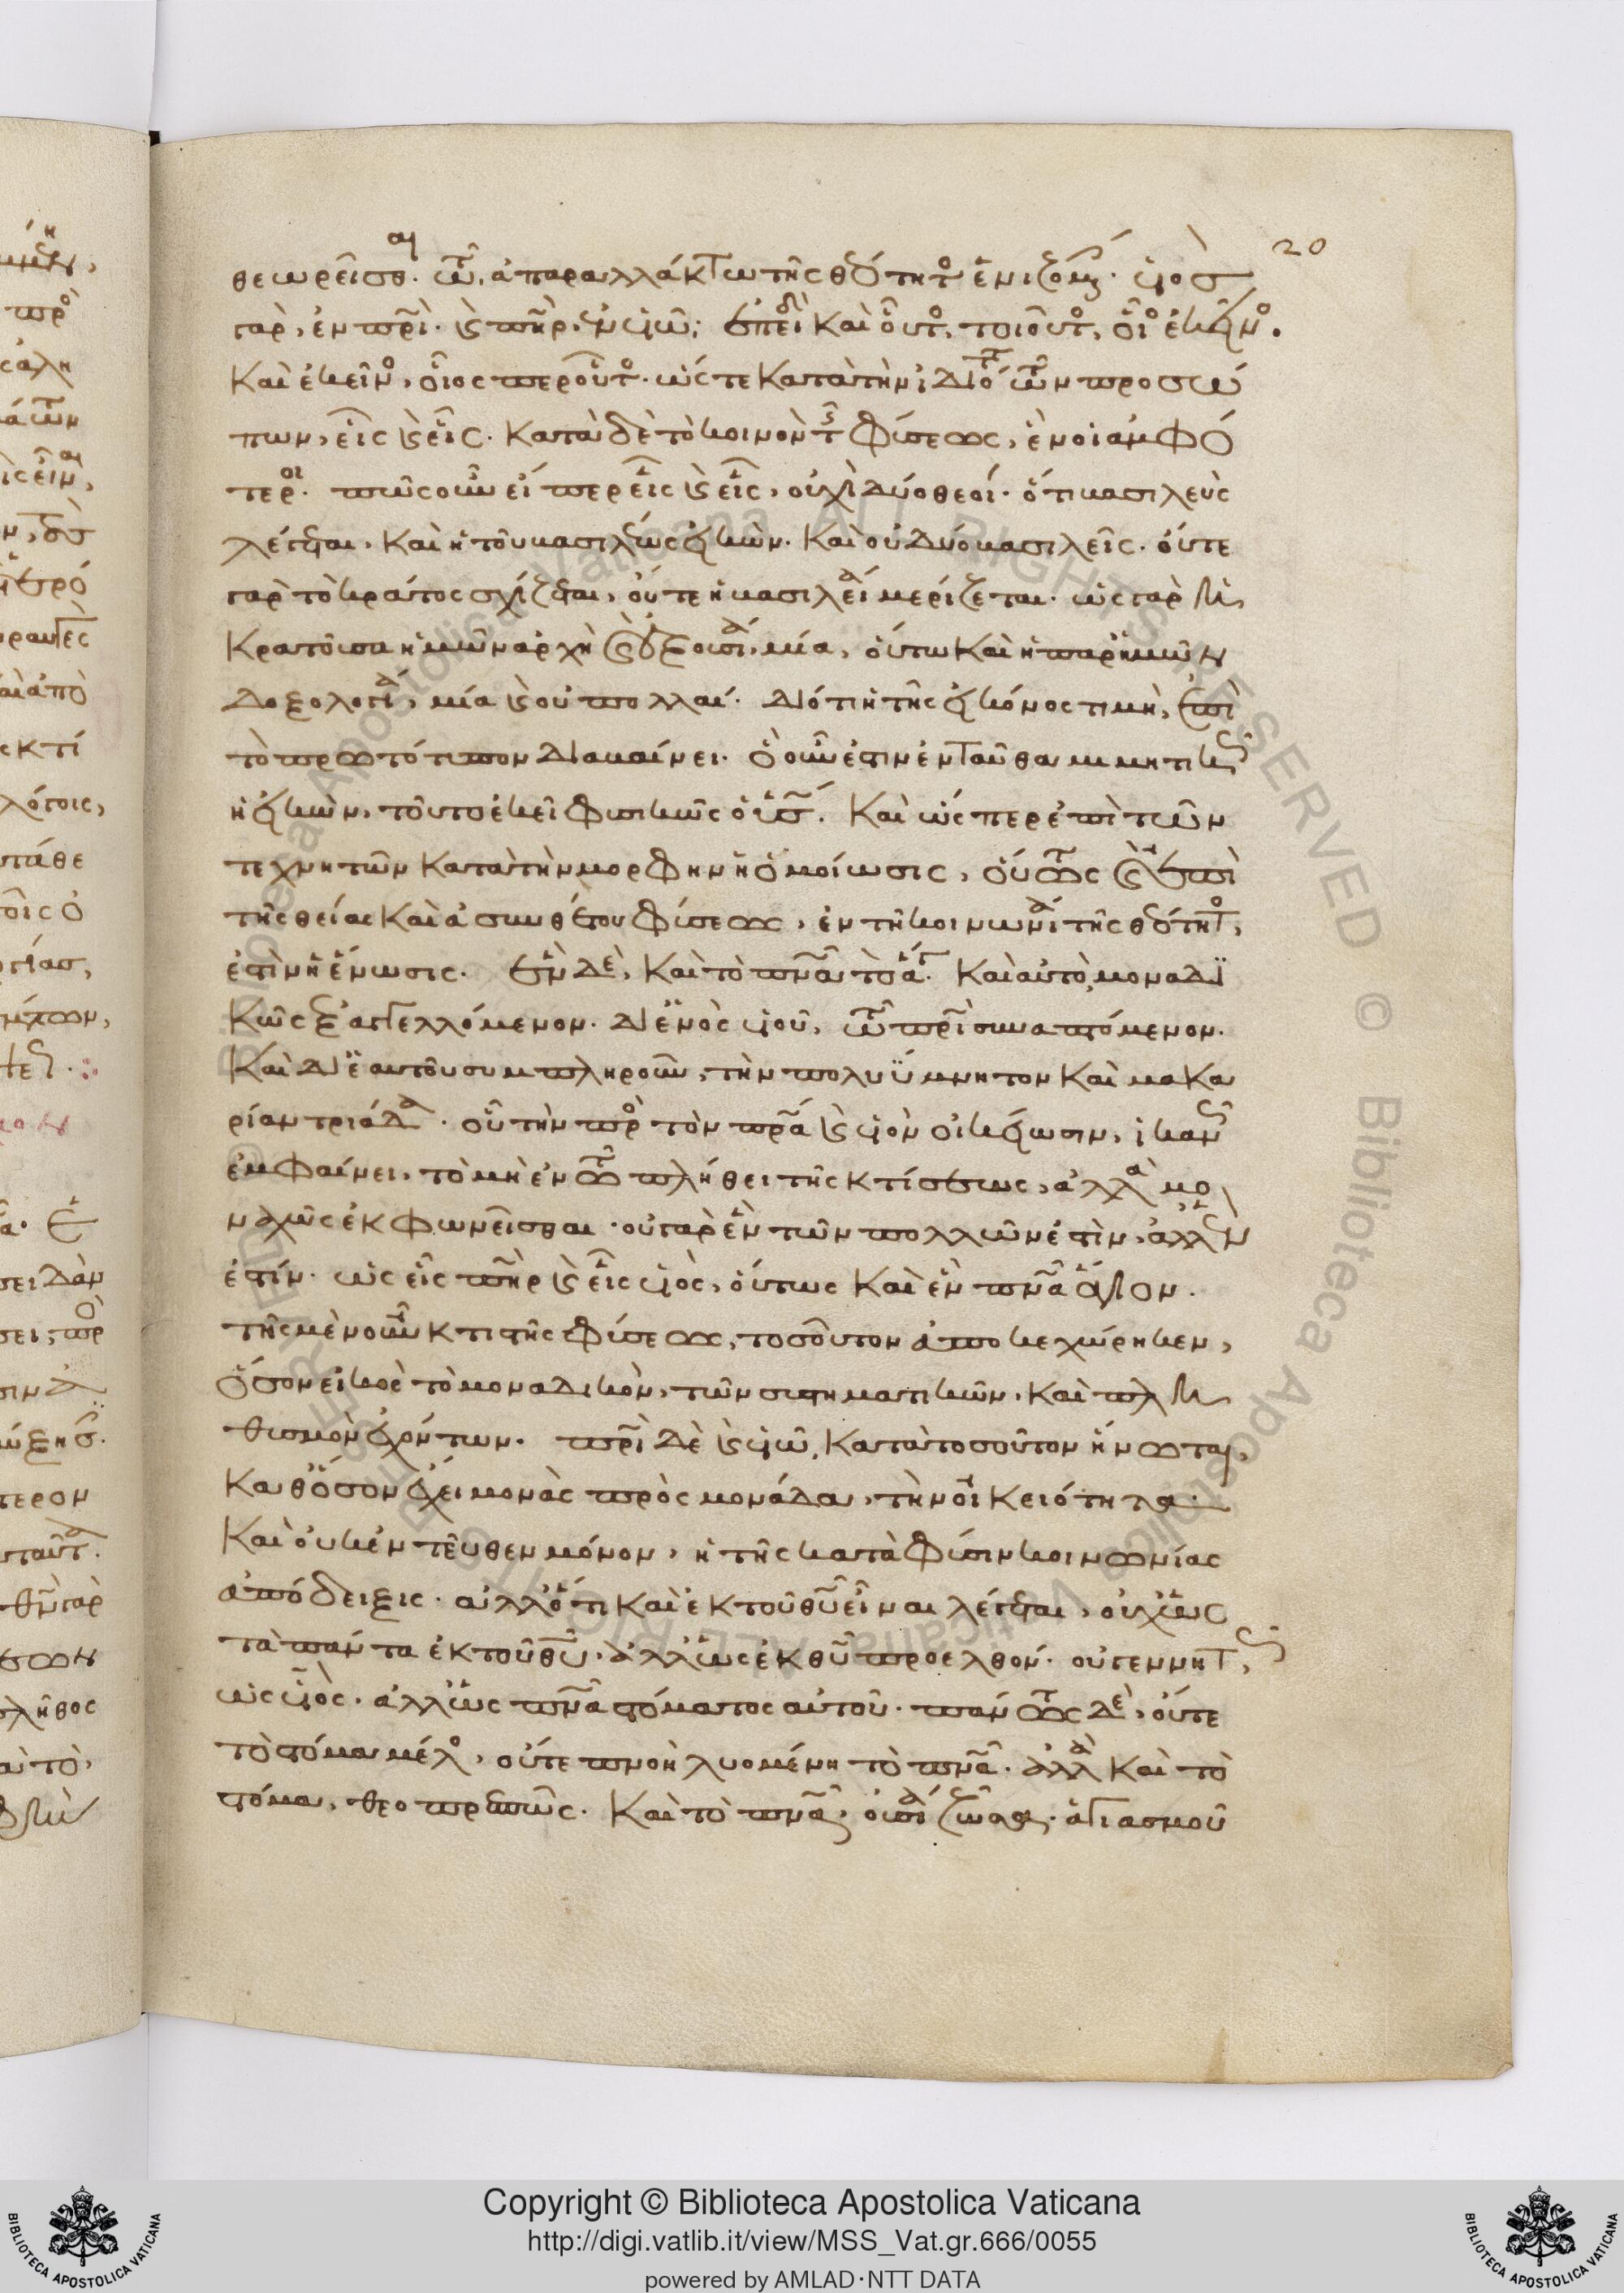 20
θεωρεῖσθαι τῶ ἀπαραλλάκτω τῆς θεότητος ἑνιζομένην. υἱὸς
γὰρ, ἐν πρὶ. καὶ πὴρ, ἐν υἱῶ; ἐπειδὴ καὶ οὗτος, τοιοῦτος, οἷος ἐκεῖνος.
Καὶ ἐκεῖνος, οἷος περ οὗτος. ὥστε κατὰ τὴν ἰδιότητα τῶν προσώ
πων, εἷς καὶ εἷς. κατὰ δὲ τὸ κοινὸν τῆς φύσεως, ἓν οἱ ἀμφό
τεροι. πῶς οὖν εἴπερ εἷς καὶ εἷς, οὐχὶ δύο θεοί. ὅτι βασιλεὺς
λέγεται, καὶ ἡ τοῦ βασιλέως εἰκών. καὶ οὐ δύο βασιλεῖς. οὔτε
γὰρ τὸ κράτος σχίζεται, οὔτε ἡ βασιλεία μερίζεται. ὡς γὰρ ἡ
κρατοῦσα ἡμῶν ἀρχὴ καὶ ἐξουσία, μία, οὕτω καὶ ἡ παρ' ἡμῶν
δοξολογία, μία καὶ οὐ πολλαί. διότι ἡ τῆς εἰκόνος τιμὴ, ἐπὶ
τὸ πρωτότυπον διαβαίνει. ὃ οὖν ἐστιν ἐνταῦθα μιμητικῶς
ἡ εἰκὼν, τοῦτο ἐκεῖ φυσικῶς ὁ υἱός. Καὶ ὥσπερ ἐπὶ τῶν
τεχνητῶν κατὰ τὴν μορφὴν ἡ ὁμοίωσις, οὕτως καὶ ἐπὶ
τῆς θείας καὶ ἀσυνθέτου φύσεως, ἐν τῇ κοινωνία τῆς θεότητος,
ἐστὶν ἡ ἕνωσις. ἓν δὲ, καὶ τὸ πνᾶ τὸ ἅγιον. Καὶ αὐτὸ μοναδι
κῶς ἐξαγγελλόμενον. δι' ἑνὸς υἱοῦ, τῶ πρὶ συναπτόμενον.
Καὶ δι' ἑαυτοῦ συμπληροῦν, τὴν πολυΰμνητον καὶ μακα
ρίαν τριάδα. οὗ τὴν πρὸς τὸν πρᾶ καὶ υἱὸν οἰκείωσιν, ἱκανῶς
ἐμφαίνει, τὸ μὴ ἐν τῶ πλήθει τῆς κτίσεως, ἀλλὰ μο
ναχῶς ἐκφωνεῖσθαι. οὐ γὰρ ἓν τῶν πολλῶν ἐστὶν, ἀλλ' ἕν
ἐστίν. ὡς εἷς πὴρ καὶ εἷς υἱὸς, οὕτως καὶ ἓν πνᾶ ἅγιον.
τῆς μὲν οὖν κτιστῆς φύσεως, τοσοῦτον ἀποκεχώρηκεν,
ὅσον εἰκὸς τὸ μοναδικὸν, τῶν συστηματικῶν, καὶ πλη
θυσμὸν ἐχόντων. πρὶ δὲ καὶ υἱῶ, κατὰ τοσοῦτον ἥνωται,
καθ' ὅσον ἔχει μονὰς πρὸς μονάδα, τὴν οἰκειότητα.
Καὶ οὐκ ἐντεῦθεν μόνον, ἡ τῆς κατὰ φύσιν κοινωνίας
ἀπόδειξις. ἀλλ' ὅτι καὶ ἐκ τοῦ θῦ εἶναι λέγεται, οὐχ ὡς
τὰ πάντα ἐκ τοῦ θῦ. ἀλλ' ὡς ἐκ θῦ προελθόν. οὐ γεννητῶς
ὡς υἱός. ἀλλ' ὡς πνᾶ στόματος αὐτοῦ. πάντως δὲ, οὔτε
τὸ στόμα μέλος, οὔτε πνοὴ λυομένη τὸ πνᾶ. ἀλλὰ καὶ τὸ
στόμα, θεοπρεπῶς. Καὶ τὸ πνᾶ, οὐσία ζῶσα. ἁγιασμοῦ
Copyright © Biblioteca Apostolica Vaticana
http://digi.vatlib.it/view/MSS_Vat.gr.666/0055
powered by AMLAD·NTT DATA